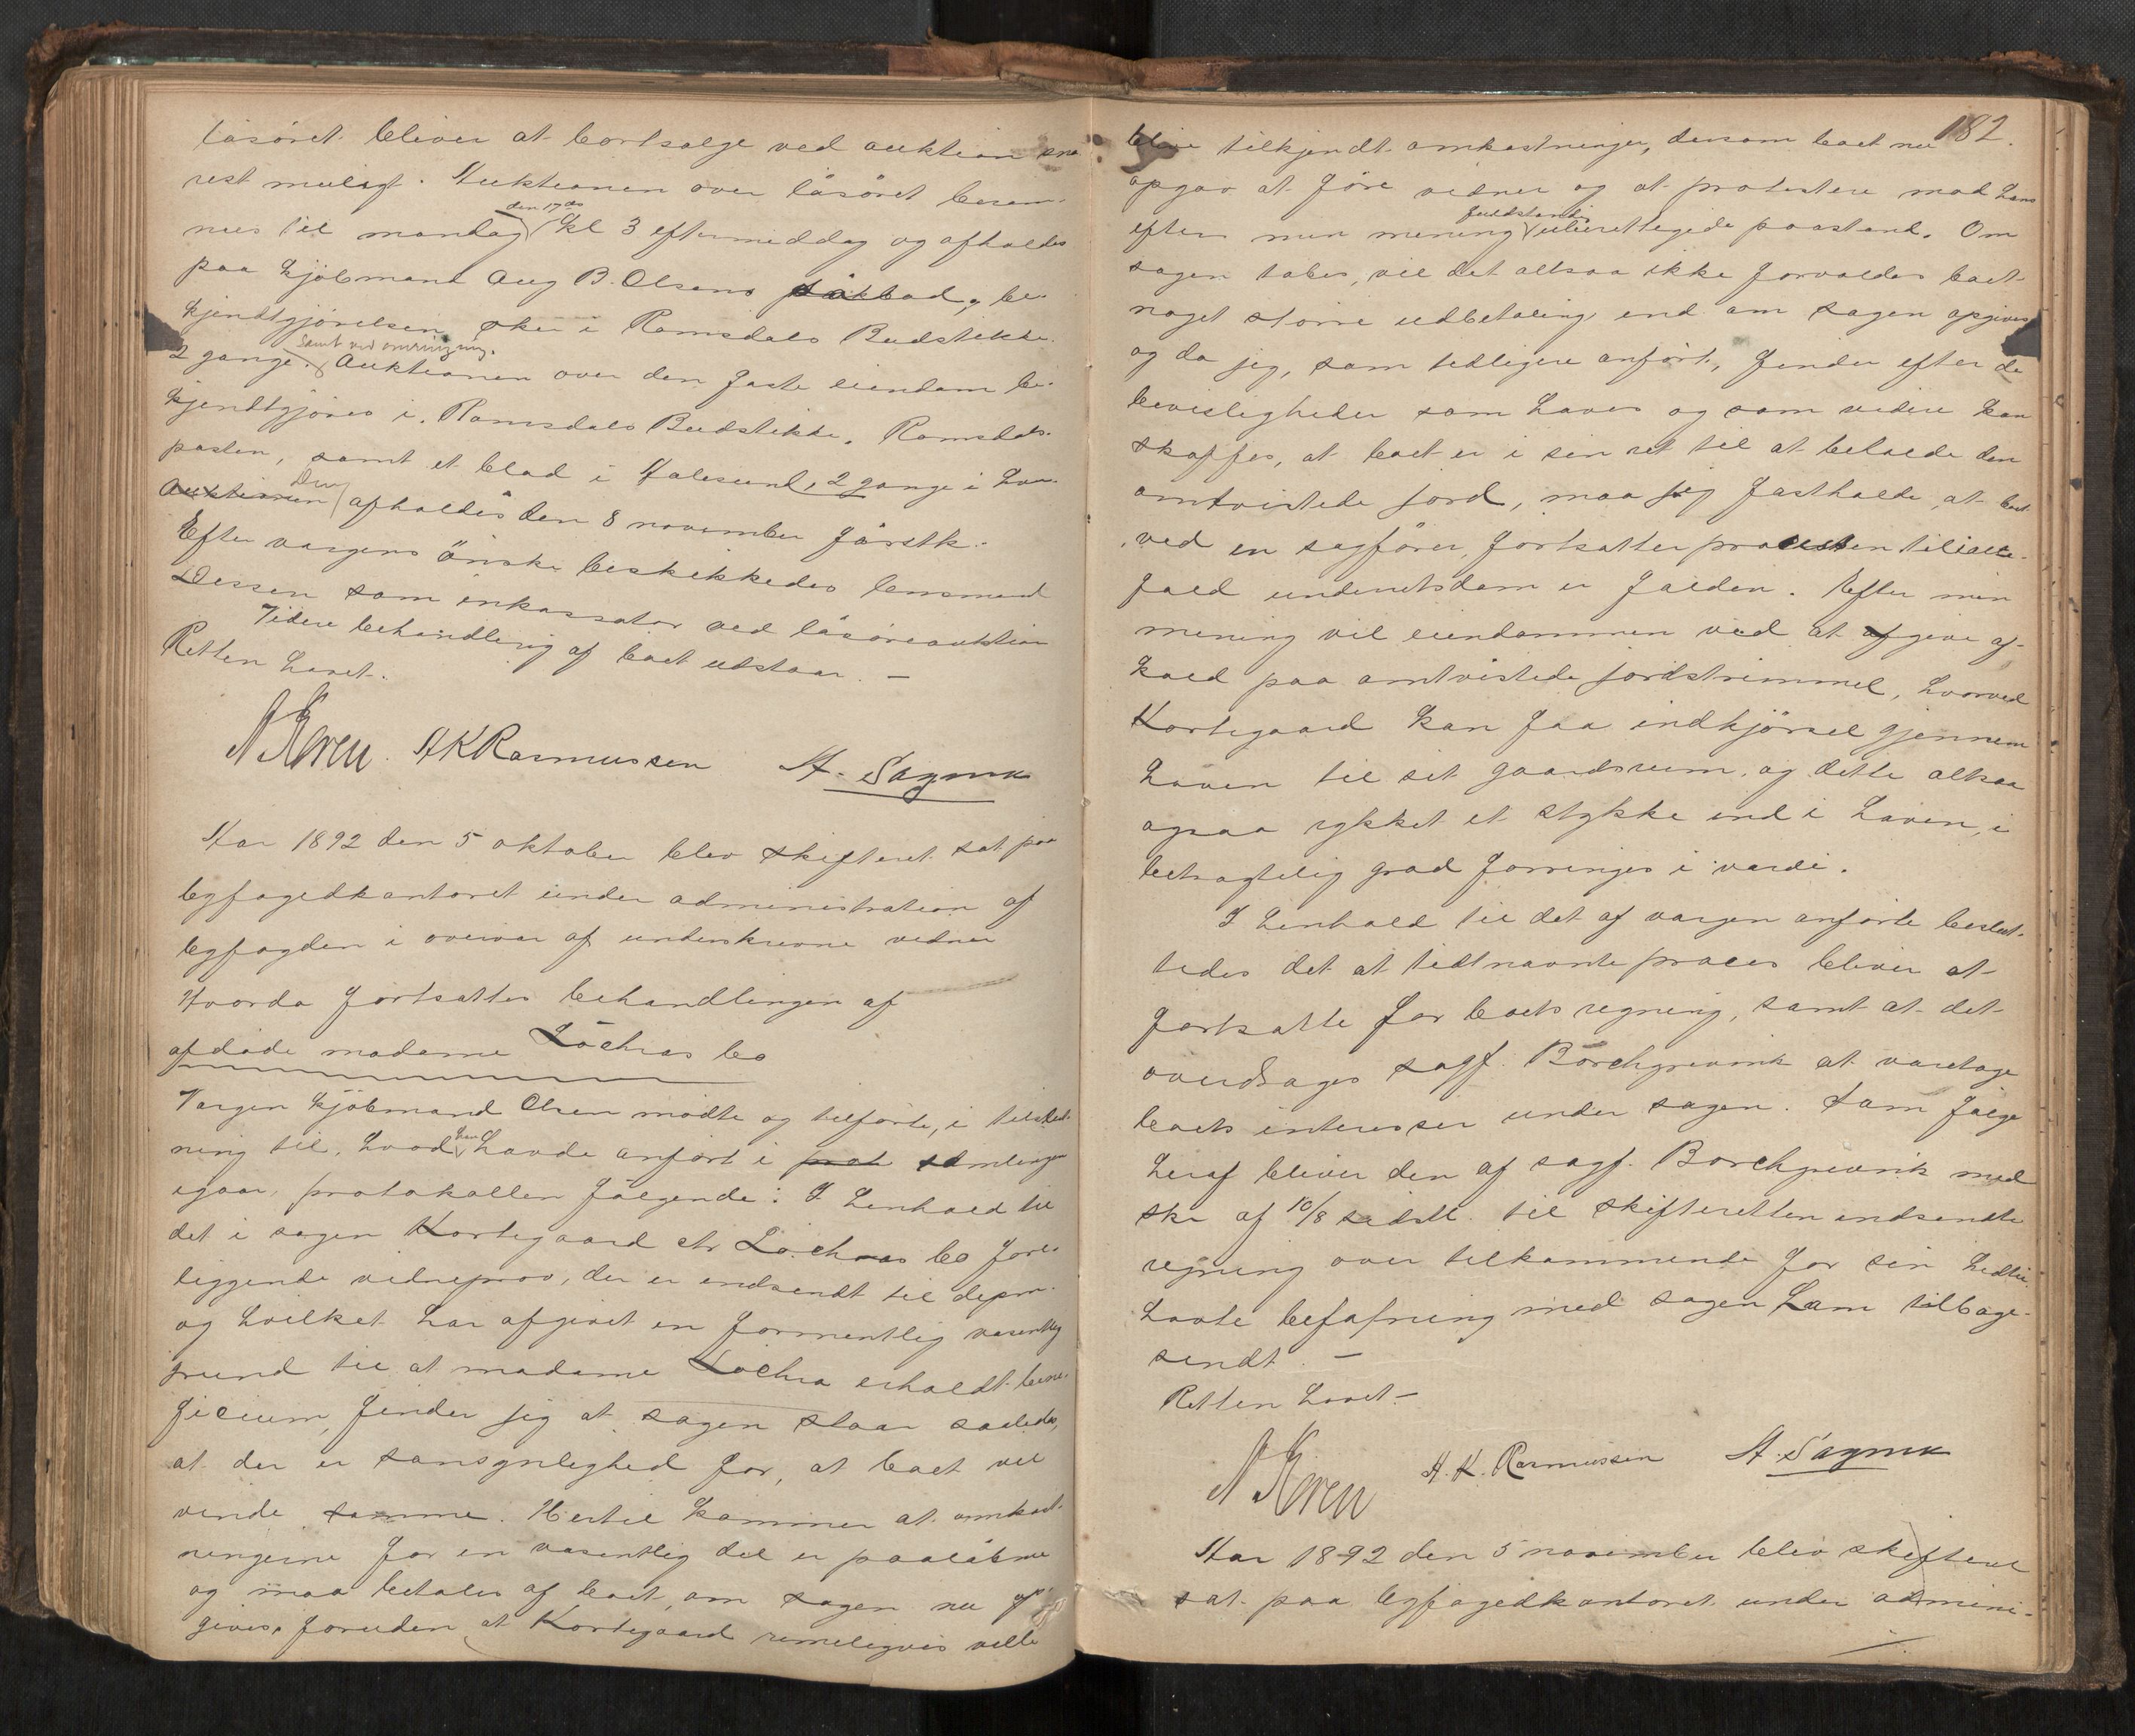 løsøret bliver at bortsælge ved auktion sna
rest muligt. Auktionen over løsøret beram-
mes til mandag den 17de kl 3 eftermiddag og afholdes
paa kjøbmand Aug B. Olsens bod, be-
kjendtgjørelsen sker i Romsdals Budstikke
2 gange samt ved omringning. Auktionen over den faste eiendom be-
kjendtgjøres i Romsdals Budstikke, Romsdals-
posten, samt et blad i Aalesund, 2 gange i hver.
Auktionen Den afholdes den 8 november førstk.
Efter vergens ønske beskikkedes lensmand
Dessen som inkassator ved løsøreauktion
Videre behandling af boet udstaar. –
Retten hævet.
A K Rasmussen
Aar 1892 den 5 oktober blev skifteret sat paa
byfogedkontoret under administration af
byfogden i overvær af underskrevne vidner
Hvorda fortsattes behandlingen af
afdøde madame Løchras bo
Vergen kjøbmand Olsen mødte og tilførte, i tilslut-
ning til, hvad han havde anført i prot samlingen
igaar, protokollen følgende: I henhold til
det i sagen Kortegaard ctr Løchras bo fore-
liggende vidneprov, der er indsendt til depm.
og hvilket har afgivet en formentlig væsentlig
grund til at madame Løchra erholdt bene-
ficium, finder jeg at sagen staar saaledes,
at der er sandsynlighed for, at boet vil
vinde samme. Hertil kommer at omkost-
ningerne for en væsentlig del er paaløbne
og maa betales af boet, om sagen nu op-
gives, foruden at Kortegaard rimeligvis ville
182.
blive tilkjendt omkostninger, dersom boet nu
opgav at føre vidner og at protestere mod hans
efter min mening fuldstændig uberettigede paastand. Om
sagen tabes, vil det altsaa ikke forvoldes boet
noget større udbetaling end om sagen opgives
og da jeg, som tidligere anført, finder efter de
bevisligheder som haves og som videre kan
skaffes, at boet er i sin ret til at beholde den
omtvistede jord, maa jeg fastholde, at boet
ved en sagfører, fortsætter processen tilialle-
fald underretsdom er falden. Efter min
mening vil eiendommen ved at afgive af-
kald paa omtvistede jordstrimmel, hvorved
Kortegaard kan faa indkjørsel gjennem
haven til sit gaardsrum, og dette altsaa
ogsaa rykket et stykke ind i haven, i
betragtelig grad forringes i værdi.
I henhold til det af vergen anførte beslut-
tedes det at tidtnævnte proces bliver at
fortsætte for boets regning, samt at det
overdrages sagf. Borchgrevink at varetage
boets interesser under sagen. Som følge
heraf bliver den af sagf. Borchgrevink med
skr af 10/8 sidstl. til skifteretten indsendte
regning over tilkommende for sin hidtil
havte befatning med sagen ham tilbage-
sendt. –
Retten hævet –
A. K. Rasmussen
Aar 1892 den 5 november blev skifteret
sat paa byfogedkontoret under admini-